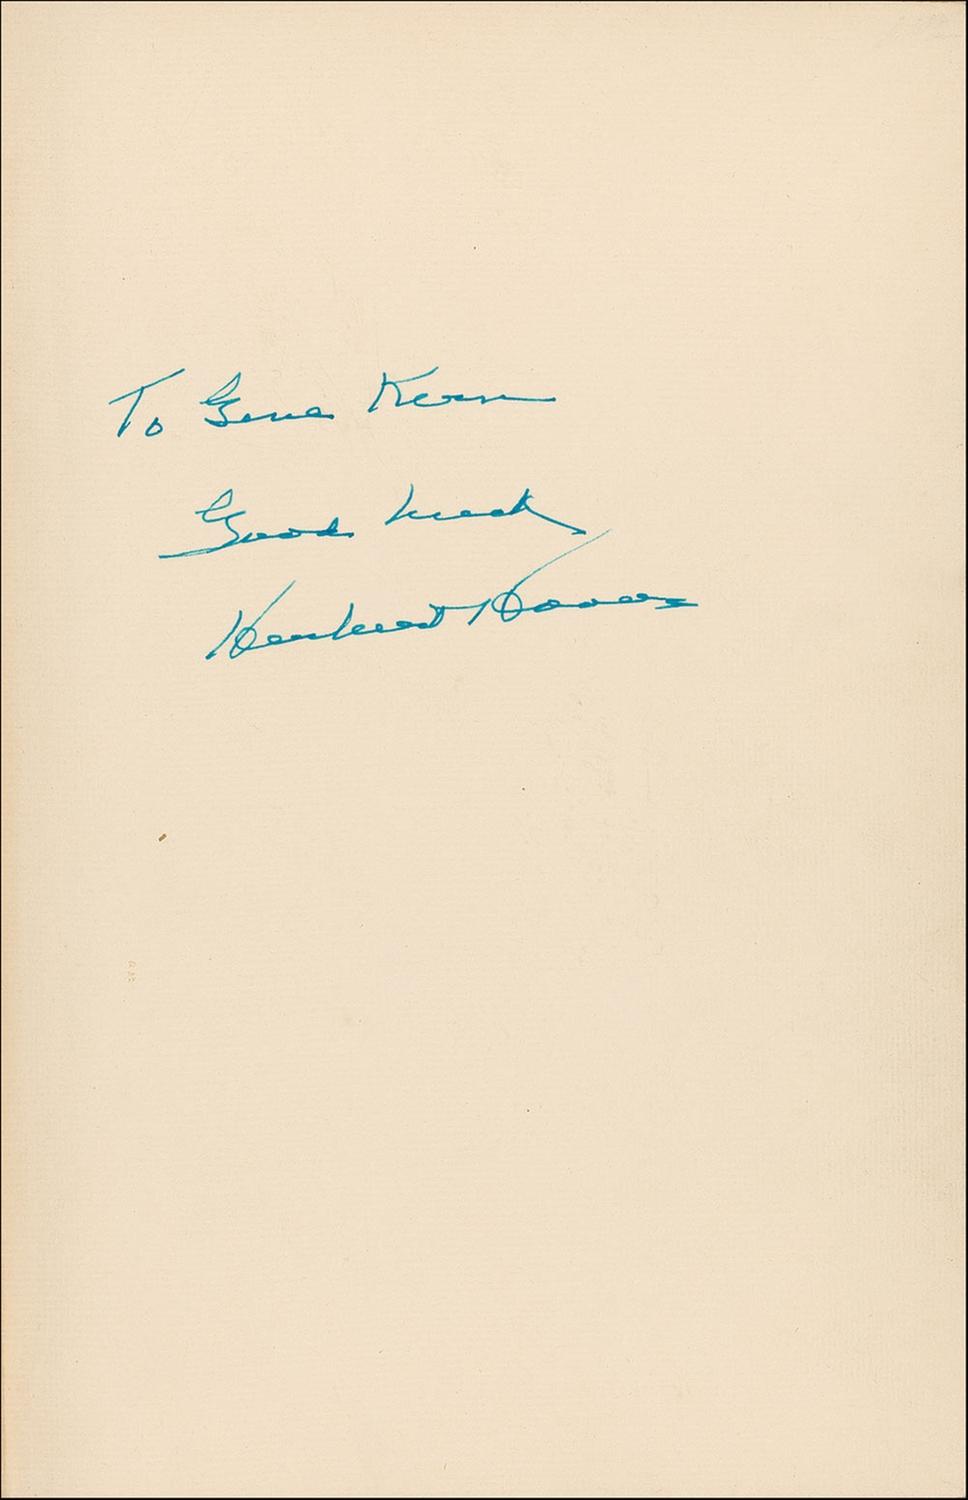 To Gene Kern
Good luck
Herbert Hoover